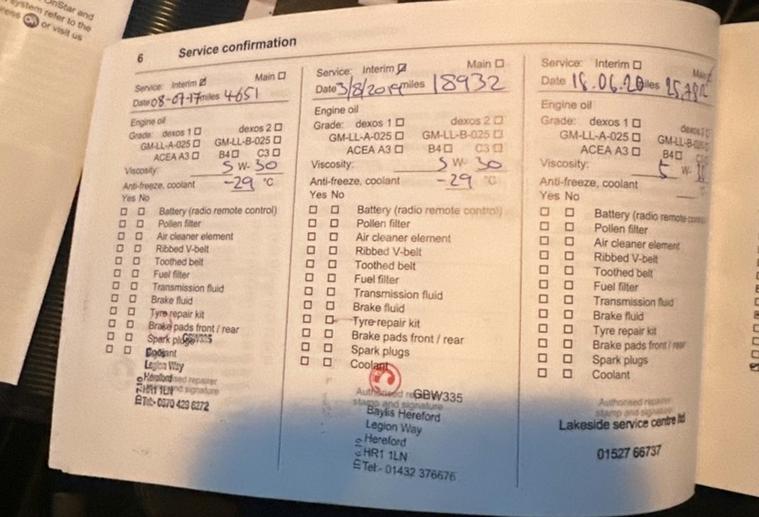 OnStar and
system refer to the
or visit us
6 Service confirmation
Service: Interim ☑ Main ☐
Date 08-07-17 miles 4651
Engine oil
Grade: dexos 1 ☐ dexos 2 ☐
GM-LL-A-025 ☐ GM-LL-B-025 ☐
ACEA A3 ☐ B4 ☐ C3 ☐
Viscosity: 5 W- 30
Anti-freeze, coolant -29 °C
Yes No
☐ ☐ Battery (radio remote control)
☐ ☐ Pollen filter
☐ ☐ Air cleaner element
☐ ☐ Ribbed V-belt
☐ ☐ Toothed belt
☐ ☐ Fuel filter
☐ ☐ Transmission fluid
☐ ☐ Brake fluid
☐ ☐ Tyre repair kit
☐ ☐ Brake pads front / rear
☐ ☐ Spark plugs
☐ ☐ Coolant
Legion Way
Hereford
HR1 1LN
Service: Interim ☑ Main ☐
Date 3/8/2019 miles 18932
Engine oil
Grade: dexos 1 ☐ dexos 2 ☐
GM-LL-A-025 ☐ GM-LL-B-025 ☐
ACEA A3 ☐ B4 ☐ C3 ☐
Viscosity: 5 W- 30
Anti-freeze, coolant -29 °C
Yes No
☐ ☐ Battery (radio remote control)
☐ ☐ Pollen filter
☐ ☐ Air cleaner element
☐ ☐ Ribbed V-belt
☐ ☐ Toothed belt
☐ ☐ Fuel filter
☐ ☐ Transmission fluid
☐ ☐ Brake fluid
☐ ☐ Tyre repair kit
☐ ☐ Brake pads front / rear
☐ ☐ Spark plugs
☐ ☐ Coolant
Authorised GBW335
stamp and signature
Baylis Hereford
Legion Way
Hereford
HR1 1LN
Tel:- 01432 376676
Service: Interim ☐ Main
Date 18.06.20
Engine oil
Grade: dexos 1 ☐ dexos 2
GM-LL-A-025 ☐ GM-LL-B-025
ACEA A3 ☐ B4 ☐
Viscosity: 5 W-
Anti-freeze, coolant
Yes No
☐ ☐ Battery (radio remote
☐ ☐ Pollen filter
☐ ☐ Air cleaner element
☐ ☐ Ribbed V-belt
☐ ☐ Toothed belt
☐ ☐ Fuel filter
☐ ☐ Transmission fluid
☐ ☐ Brake fluid
☐ ☐ Tyre repair kit
☐ ☐ Brake pads front / rear
☐ ☐ Spark plugs
☐ ☐ Coolant
Authorised repairer
stamp and signature
Lakeside service centre ltd
01527 66737